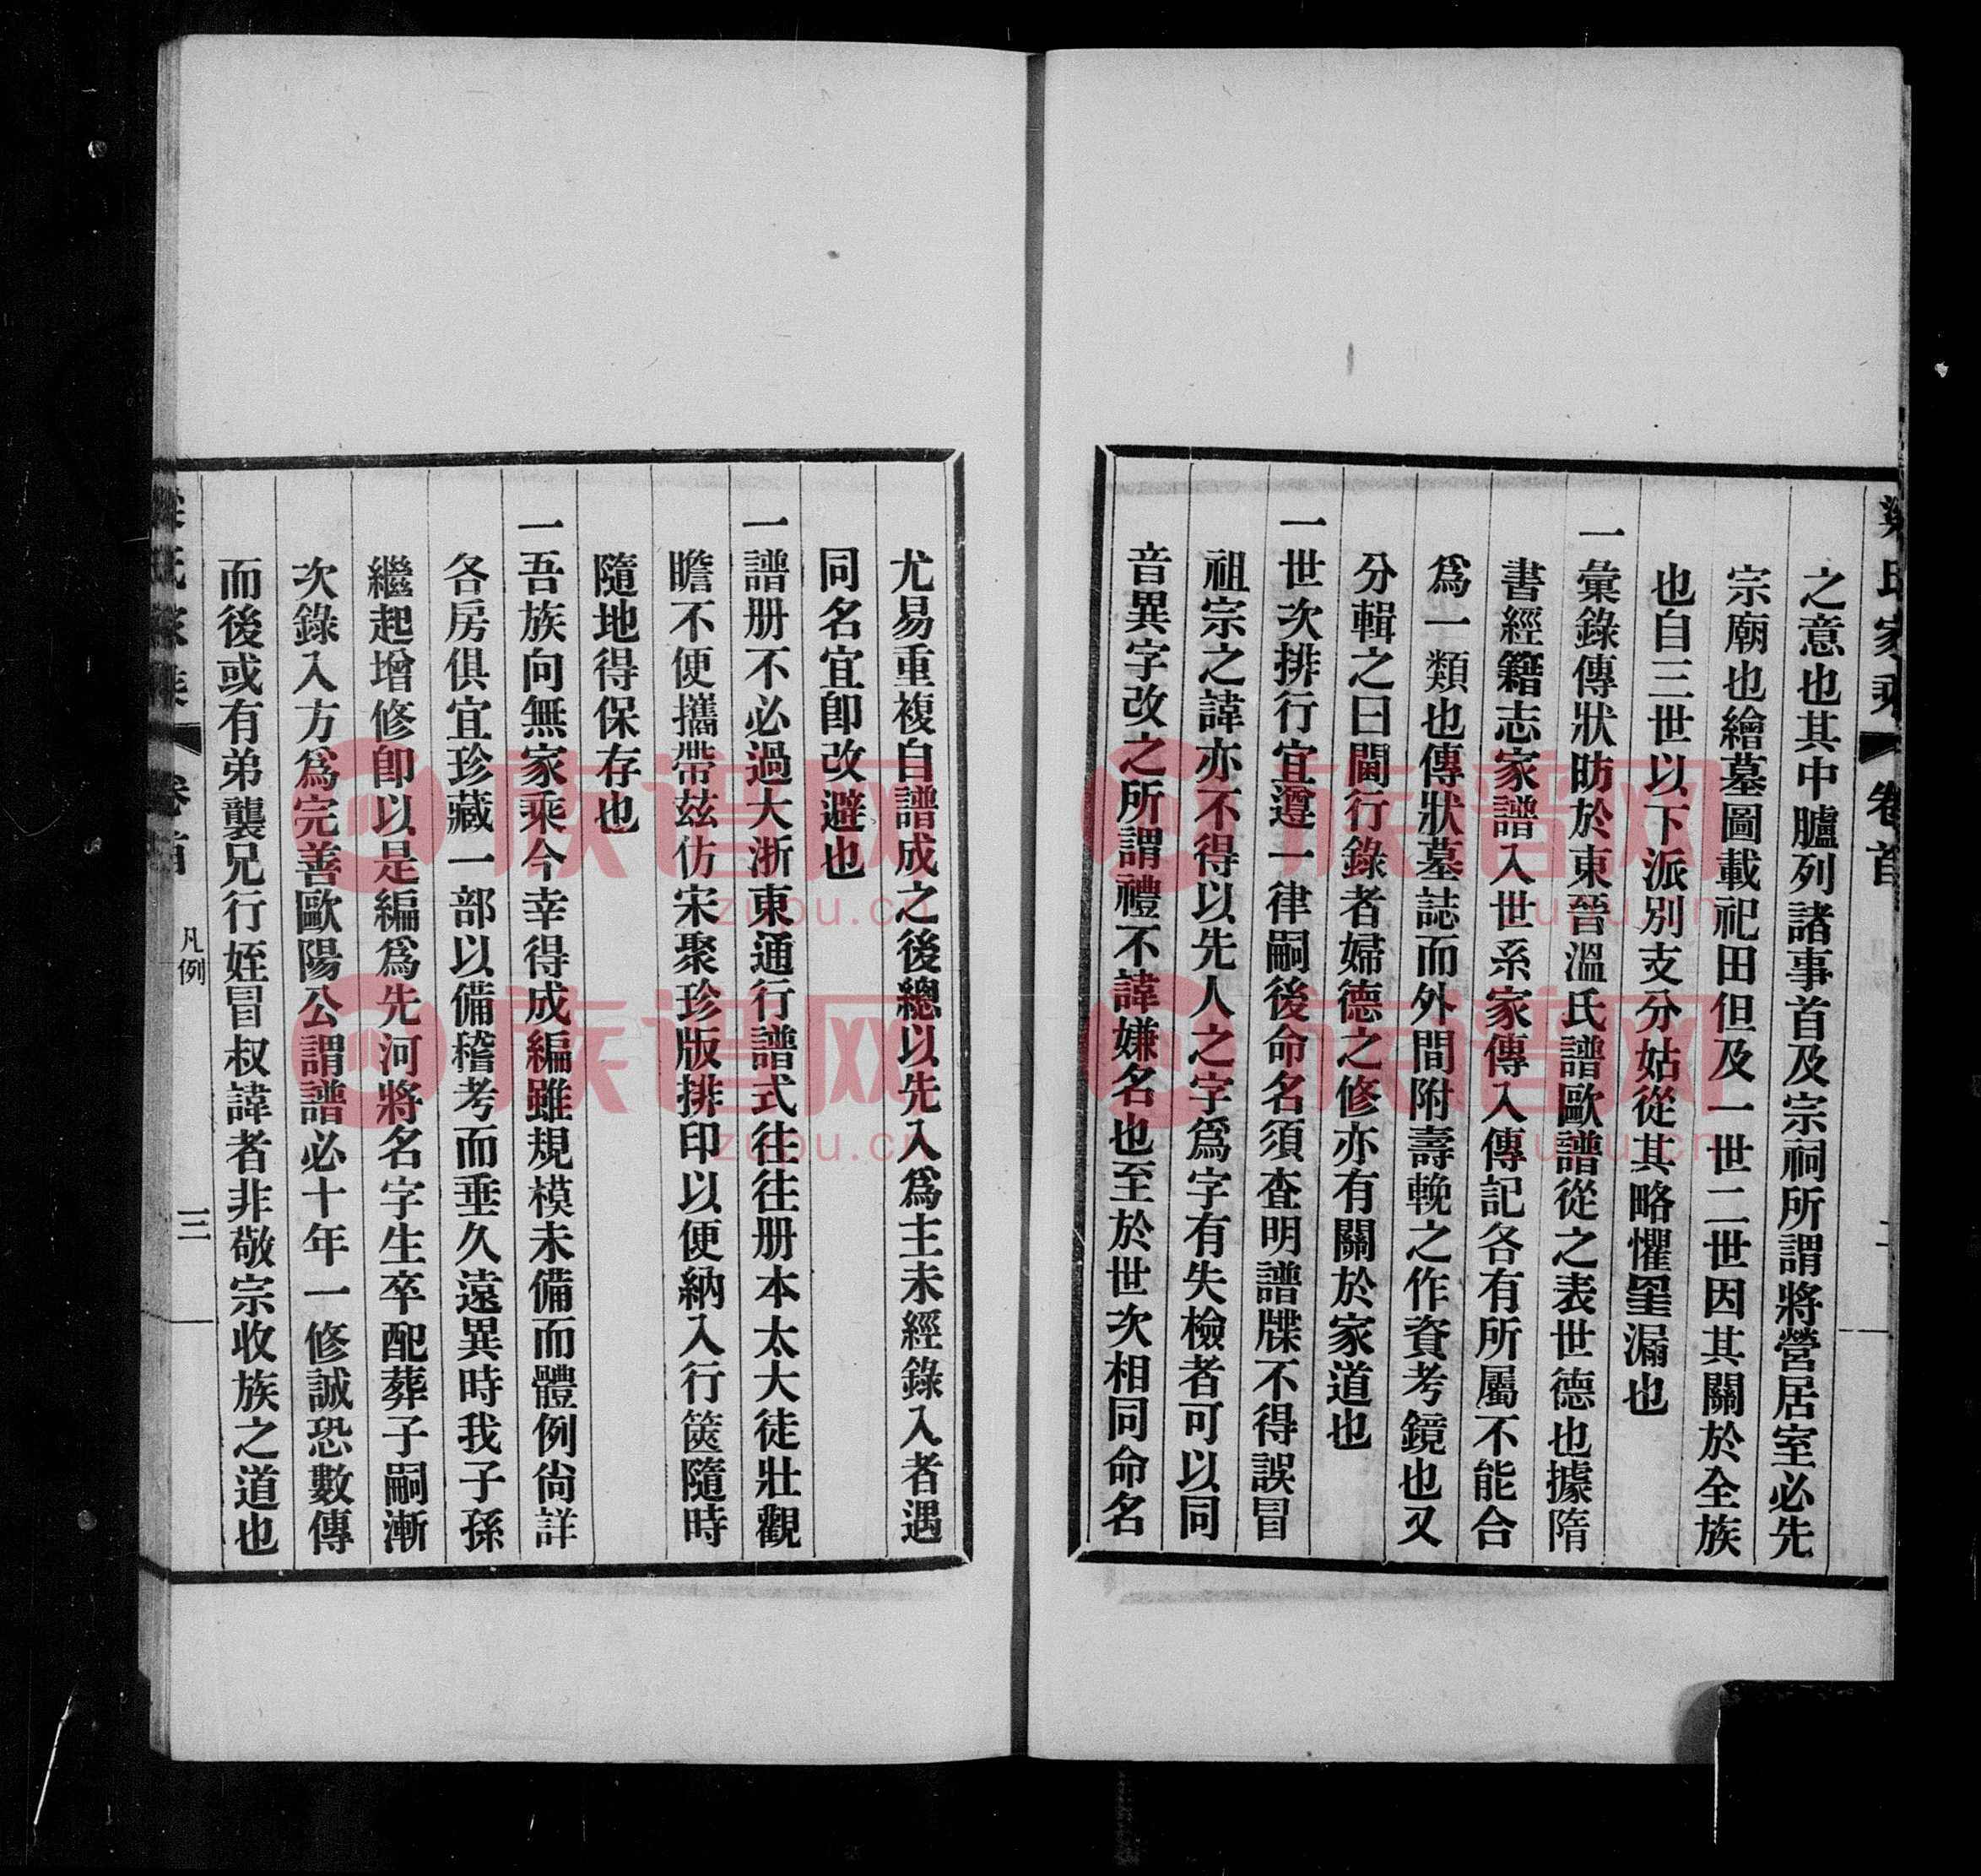 氏家乘 卷首
之意也其中臚列諸事首及宗祠所謂將營居室必先
宗廟也繪墓圖載祀田但及一世二世因其關於全族
也自三世以下派別支分姑從其略懼罣漏也
一彙錄傳狀昉於東晉溫氏譜歐譜從之表世德也據隋
書經籍志家譜入世系家傳入傳記各有所屬不能合
爲一類也傳狀墓誌而外間附壽輓之作資考鏡也又
分輯之曰閫行錄者婦德之修亦有關於家道也
一世次排行宜遵一律嗣後命名須查明譜牒不得誤冒
祖宗之諱亦不得以先人之字爲字有失檢者可以同
音異字改之所謂禮不諱嫌名也至於世次相同命名
尤易重複自譜成之後總以先入爲主未經錄入者遇
同名宜即改避也
一譜册不必過大浙東通行譜式往往册本太大徒壯觀
瞻不便攜帶茲仿宋聚珍版排印以便納入行篋隨時
隨地得保存也
一吾族向無家乘今幸得成編雖規模未備而體例尙詳
各房俱宜珍藏一部以備稽考而垂久遠異時我子孫
繼起增修即以是編爲先河將名字生卒配葬子嗣漸
次錄入方爲完善歐陽公謂譜必十年一修誠恐數傳
而後或有弟襲兄行姪冒叔諱者非敬宗收族之道也
凡例
三
族谱网
zupu.cn
族谱网
zupu.cn
族谱网
zupu.cn
族谱网
zupu.cn